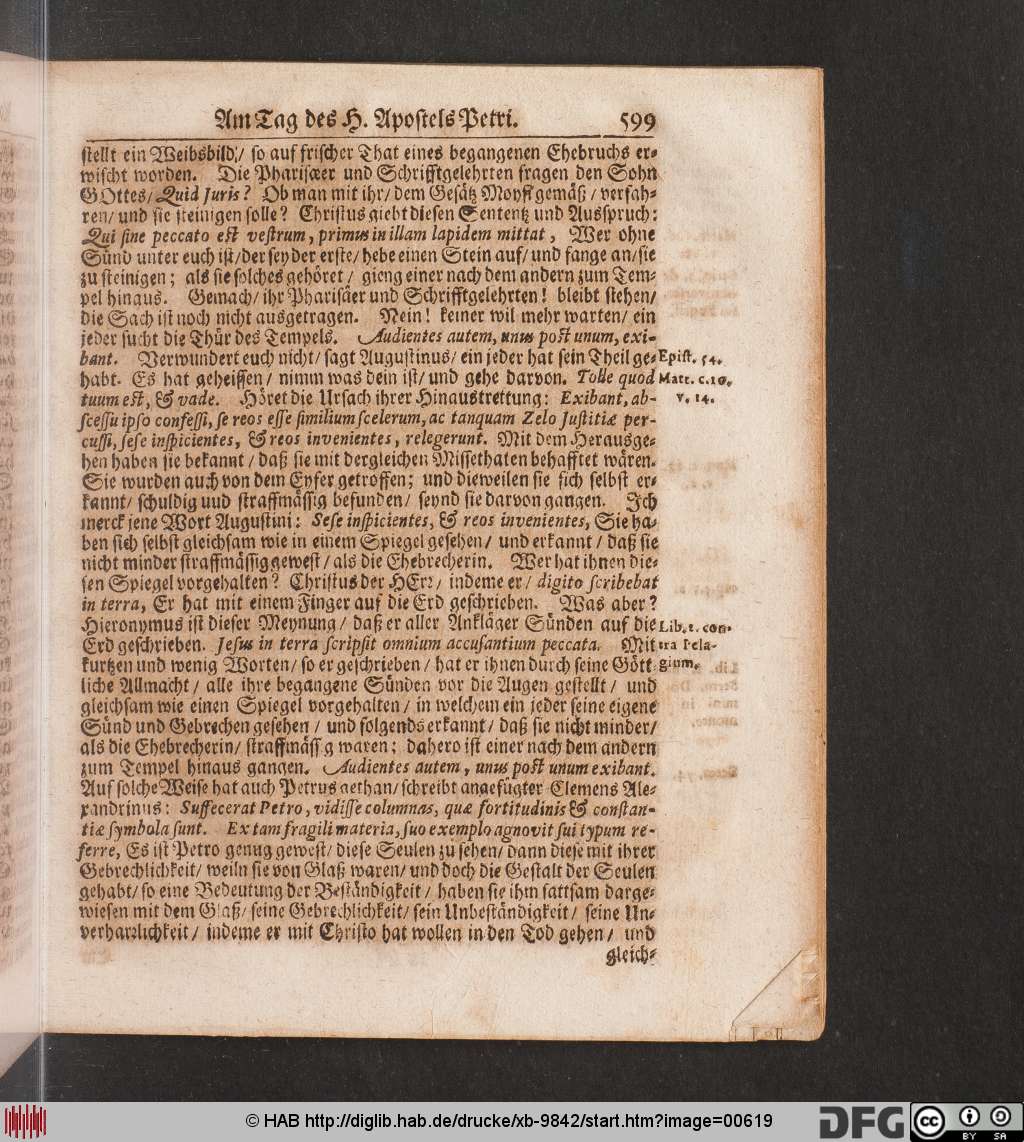 Am Tag des H. Apostels Petri. 599
stellt ein Weibsbild / so auf frischer That eines begangenen Ehebruchs er-
wischt worden. Die Pharisæer und Schrifftgelehrten fragen den Sohn
GOttes / Quid Juris? Ob man mit ihr / dem Gesätz Moysi gemäß / verfah-
ren / und sie steinigen solle? Christus giebt diesen Sententz und Ausspruch:
Qui sine peccato est vestrum, primus in illam lapidem mittat, Wer ohne
Sünd unter euch ist / der sey der erste / hebe einen Stein auf / und fange an / sie
zu steinigen; als sie solches gehöret / gieng einer nach dem andern zum Tem-
pel hinaus. Gemach / ihr Pharisäer und Schrifftgelehrten! bleibt stehen /
die Sach ist noch nicht ausgetragen. Nein! keiner wil mehr warten / ein
jeder sucht die Thür des Tempels. Audientes autem, unus post unum, exi-
bant. Verwundert euch nicht / sagt Augustinus / ein jeder hat sein Theil ge- Epist. 54.
habt. Es hat geheissen / nimm was dein ist / und gehe darvon. Tolle quod Matt. c. 20.
tuum est, & vade. Höret die Ursach ihrer Hinaustrettung: Exibant, ab- v. 14.
scessu ipso confessi, se reos esse similium scelerum, ac tanquam Zelo Justitiæ per-
cussi, sese inspicientes, & reos invenientes, relegerunt. Mit dem Herausge-
hen haben sie bekannt / daß sie mit dergleichen Missethaten behafftet wären.
Sie wurden auch von dem Eyfer getroffen; und dieweilen sie sich selbst er-
kannt / schuldig uud straffmässig befunden / seynd sie darvon gangen. Ich
merck jene Wort Augustini: Sese inspicientes, & reos invenientes, Sie ha-
ben sich selbst gleichsam wie in einem Spiegel gesehen / und erkannt / daß sie
nicht minder straffmässig gewest / als die Ehebrecherin. Wer hat ihnen die-
sen Spiegel vorgehalten? Christus der HErr / indeme er / digito scribebat
in terra, Er hat mit einem Finger auf die Erd geschrieben. Was aber?
Hieronymus ist dieser Meynung / daß er aller Ankläger Sünden auf die Lib. 2. con-
Erd geschrieben. Jesus in terra scripsit omnium accusantium peccata. Mit tra Pela-
kurtzen und wenig Worten / so er geschrieben / hat er ihnen durch seine Gött- gium.
liche Allmacht / alle ihre begangene Sünden vor die Augen gestellt / und
gleichsam wie einen Spiegel vorgehalten / in welchem ein jeder seine eigene
Sünd und Gebrechen gesehen / und folgends erkannt / daß sie nicht minder /
als die Ehebrecherin / straffmässig waren; dahero ist einer nach dem andern
zum Tempel hinaus gangen. Audientes autem, unus post unum exibant.
Auf solche Weise hat auch Petrus gethan / schreibt angefügter Clemens Ale-
xandrinus: Suffecerat Petro, vidisse columnas, quæ fortitudinis & constan-
tiæ symbola sunt. Ex tam fragili materia, suo exemplo agnovit sui typum re-
ferre, Es ist Petro genug gewest / diese Seulen zu sehen / dann diese mit ihrer
Gebrechlichkeit / weiln sie von Glaß waren / und doch die Gestalt der Seulen
gehabt / so eine Bedeutung der Beständigkeit / haben sie ihm sattsam darge-
wiesen mit dem Glaß / seine Gebrechlichkeit / sein Unbeständigkeit / seine Un-
verharrlichkeit / indeme er mit Christo hat wollen in den Tod gehen / und
gleich-
© HAB http://diglib.hab.de/drucke/xb-9842/start.htm?image=00619
DFG
cc
BY SA